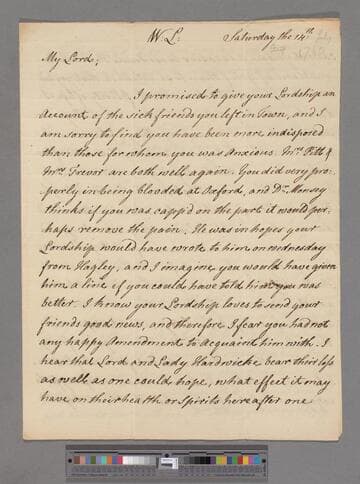 W. L. Saturday the 14th
My Lord,
I promised to give your Lordship an
Account of the sick friends you left in Town, and I
am sorry to find you have been more indisposed
than those for whom you was Anxious. Mrs. Pitt &
Mrs. Trevor are both well again. You did very pro-
perly in being blooded at Oxford, and Dr. Monsey
thinks if you was capp'd on the part it would per-
haps remove the pain. He was in hopes your
Lordship would have wrote to him on wednesday
from Hagley, and I imagine you would have given
him a line if you could have told him you was
better. I know your Lordship loves to send your
friends good news, and therefore I fear you had not
any happy Amendment to Acquaint him with. I
hear that Lord and Lady Hardwicke bear their loss
as well as one could hope, what effect it may
have on their health or Spirits hereafter one